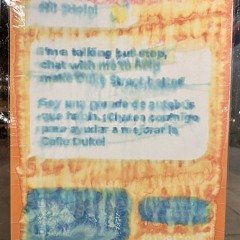 Hi! ¡Hola!
I'm a talking bus stop,
chat with me to help
make Duke Street better.
Soy una parada de autobús
que habla, ¡chatea conmigo
para ayudar a mejorar la
Calle Duke!